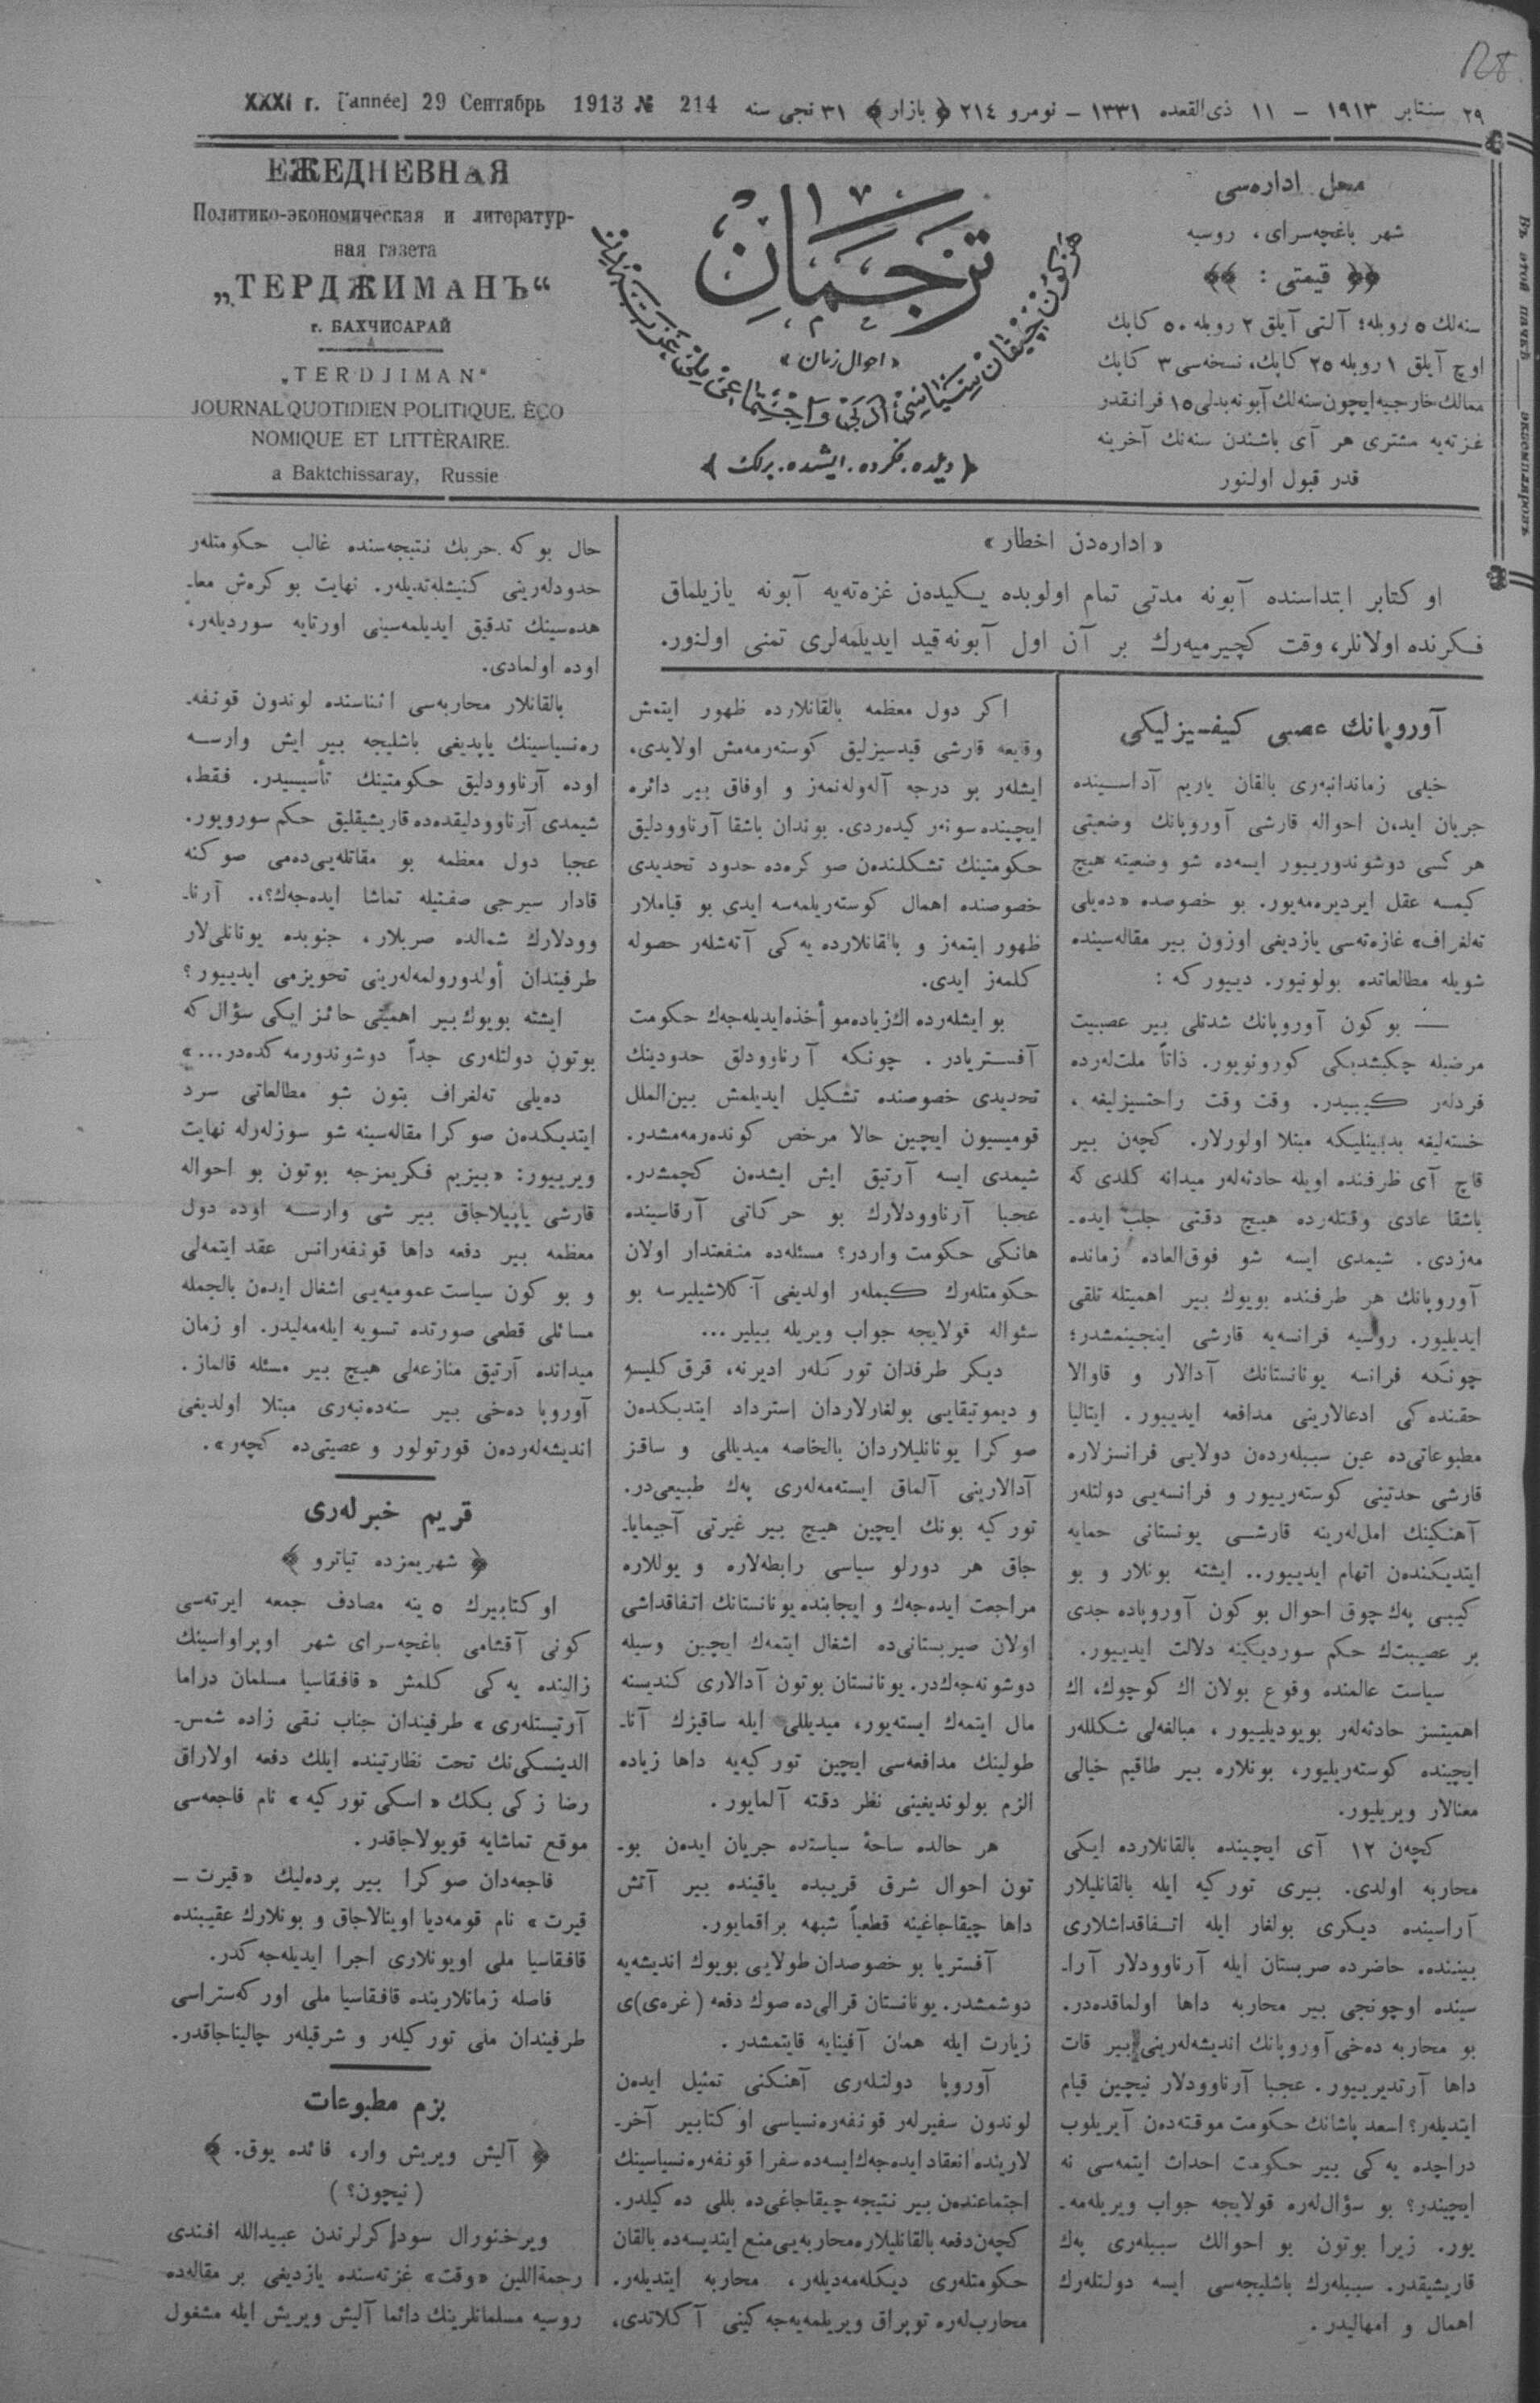 128
XXXI г. [année] 29 Сентябрь 1913 № 214
٢٩ سنتابر ١٩١٣ – ١١ ذی‌القعده ١٣٣١ – نومرو ٢١٤ ﴿ بازار ﴾ ٣١ نجی سنه
ЕЖЕДНЕВНАЯ
Политико-экономическая и литератур-
ная газета
„ТЕРДЖИМАНЪ“
г. БАХЧИСАРАЙ
„TERDJIMAN“
JOURNAL QUOTIDIEN POLITIQUE, ÈCO
NOMIQUE ET LITTÈRAIRE.
a Baktchissaray, Russie
ترجمان
« احوال زمان »
هر کون چیقان سیاسی، ادبی و اجتماعی ملی غزته‌در
﴿ دیلده . فکرده . ایشده . برلك ﴾
محل اداره‌سی
شهر باغچه‌سرای، روسیه
﴿﴿ قیمتی : ﴾﴾
سنه‌لك ٥ روبله؛ آلتی آیلق ٢ روبله ٥٠ کاپك
اوچ آیلق ١ روبله ٢٥ کاپك، نسخه‌سی ٣ کاپك
ممالك خارجیه ایچون سنه‌لك آبونه بدلی ١٥ فرانقدر
غزته‌یه مشتری هر آی باشندن سنه‌نك آخرینه
قدر قبول اولنور
Въ этой пачкѣ экземпляровъ
« اداره‌دن اخطار »
اوکتابر ابتداسنده آبونه مدتی تمام اولوبده یکیدەن غزەتەیه آبونه یازیلماق
فکرنده اولانلر، وقت کچیرمیەرك بر آن اول آبونه قید ایدیلمەلری تمنی اولنور.
آوروپانك عصبی کیفسیزلیکی
خیلی زماندانبەری بالقان یاریم آداسینده
جریان ایدەن احواله قارشی آوروپانك وضعیتی
هر کسی دوشوندوریبور ایسەده شو وضعیته هیچ
کیمسه عقل ایردیرەمەیور. بو خصوصده «دەیلی
تەلغراف» غازەتەسی یازدیغی اوزون بیر مقاله‌سینده
شویله مطالعاتده بولونیور. دییور که :
— بو کون آوروپانك شدتلی بیر عصبیت
مرضیله چکیشدیکی کورونویور. ذاتاً ملت‌لەرده
فردلەر کیبیدر. وقت وقت راحتسیزلیغه ،
خستەلیغه بدبینلیکه مبتلا اولورلار. کچەن بیر
قاچ آی ظرفنده اویله حادثەلەر میدانه کلدی که
باشقا عادی وقتلەرده هیچ دقتی جلب ایدە-
مەزدی. شیمدی ایسه شو فوق‌العاده زمانده
آوروپانك هر طرفنده بویوك بیر اهمیتله تلقی
ایدیلیور. روسیه فرانسەیه قارشی اینجینمشدر؛
چونکه فرانسه یونانستانك آدالار و قاوالا
حقنده‌کی ادعالارینی مدافعه ایدییور. ایتالیا
مطبوعاتی‌ده عین سببلەردەن دولایی فرانسزلاره
قارشی حدتینی کوستەرییور و فرانسەیی دولتلەر
آهنکینك امل‌لەرینه قارشی یونستانی حمایه
ایتدیکندەن اتهام ایدییور.. ایشته بونلار و بو
کیبی پەك چوق احوال بو کون آوروپاده جدی
بر عصبیتك حکم سوردیکینه دلالت ایدییور.
سیاست عالمنده وقوع بولان اك کوچوك، اك
اهمیتسز حادثەلەر بویودیلیور ، مبالغەلی شکللەر
ایچینده کوستەریلیور، بونلاره بیر طاقیم خیالی
معنالار ویریلیور.
کچەن ١٢ آی ایچینده بالقانلارده ایکی
محاربه اولدی. بیری تورکیه ایله بالقانلیلار
آراسینده دیکری بولغار ایله اتفاقداشلاری
بیننده. حاضرده صربستان ایله آرناوودلار آرا-
سینده اوچونجی بیر محاربه داها اولماقده‌در.
بو محاربه دەخی آوروپانك اندیشەلەرینی بیر قات
داها آرتدیرییور. عجبا آرناوودلار نیچین قیام
ایتدیلەر؟ اسعد پاشانك حکومت موقتەدەن آیریلوب
دراچده یەکی بیر حکومت احداث ایتمەسی نه
ایچیندر؟ بو سؤال‌لەره قولایجه جواب ویریلەمە-
یور. زیرا بوتون بو احوالك سببلەری پەك
قاریشیقدر. سببلەرك باشلیجەسی ایسه دولتلەرك
اهمال و امهالیدر.
اکر دول معظمه بالقانلارده ظهور ایتمش
وقایعه قارشی قیدسیزلیق کوستەرمەمش اولایدی،
ایشلەر بو درجه آلەولەنمەز و اوفاق بیر دائره
ایچینده سونەر کیدەردی. بوندان باشقا آرناوودلیق
حکومتینك تشکلندەن صوکره‌ده حدود تحدیدی
خصوصنده اهمال کوستەریلمەسه ایدی بو قیاملار
ظهور ایتمەز و بالقانلارده یەکی آتەشلەر حصوله
کلمەز ایدی.
بو ایشلەرده اك زیاده مؤاخذه ایدیلەجەك حکومت
آفستریادر. چونکه آرناوودلق حدودینك
تحدیدی خصوصنده تشکیل ایدیلمش بین‌الملل
قومیسیون ایچین حالا مرخص کوندەرمەمشدر.
شیمدی ایسه آرتیق ایش ایشدەن کچمشدر.
عجبا آرناوودلارك بو حرکاتی آرقاسینده
هانکی حکومت واردر؟ مسئلەده منفعتدار اولان
حکومتلەرك کیملەر اولدیغی آکلاشیلیرسه بو
سئواله قولایجه جواب ویریله بیلیر...
دیکر طرفدان تورکلەر ادیرنه، قرق کلیسه
و دیموتیقایی بولغارلاردان استرداد ایتدیکدەن
صوکرا یونانلیلاردان بالخاصه میدیللی و ساقز
آدالارینی آلماق ایستەمەلەری پەك طبیعی‌در.
تورکیه بونك ایچین هیچ بیر غیرتی آجیمایا-
جاق هر دورلو سیاسی رابطەلاره و یوللاره
مراجعت ایدەجەك و ایجابنده یونانستانك اتفاقداشی
اولان صیربستانی‌ده اشغال ایتمەك ایچین وسیله
دوشونەجەك‌در. یونانستان بوتون آدالاری کندیسنه
مال ایتمەك ایستەیور، میدیللی ایله ساقیزك آنا-
طولینك مدافعەسی ایچین تورکیەیه داها زیاده
الزم بولوندیغینی نظر دقته آلمایور.
هر حالده ساحۀ سیاستده جریان ایدەن بو-
تون احوال شرق قریبده یاقینده بیر آتش
داها چیقاجاغینه قطعیاً شبهه براقمایور.
آفستریا بو خصوصدان طولایی بویوك اندیشەیه
دوشمشدر. یونانستان قرالی‌ده صوك دفعه (غرەی)ی
زیارت ایله همان آفینایه قایتمشدر.
آوروپا دولتلەری آهنکنی تمثیل ایدەن
لوندون سفیرلەر قونفەرەنسیاسی اوکتابیر آخر-
لارینده انعقاد ایدەجەك ایسەده سفرا قونفەرەنسیاسینك
اجتماعندەن بیر نتیجه چیقاجاغی‌ده بللی دەکیلدر.
کچەن دفعه بالقانلیلاره محاربەیی منع ایتدیسەده بالقان
حکومتلەری دیکلەمەدیلەر، محاربه ایتدیلەر.
محارب‌لەره توپراق ویریلمەیەجەکینی آکلاتدی،
حال بوکه حربك نتیجەسنده غالب حکومتلەر
حدودلەرینی کنیشلەتدیلەر. نهایت بوکرەش معا-
هدەسینك تدقیق ایدیلمەسینی اورتایه سوردیلەر،
اوده اولمادی.
بالقانلار محاربەسی اثناسنده لوندون قونفە-
رەنسیاسینك یاپدیغی باشلیجه بیر ایش وارسه
اوده آرناوودلیق حکومتینك تأسیسیدر. فقط،
شیمدی آرناوودلیقده‌ده قاریشیقلیق حکم سورویور.
عجبا دول معظمه بو مقاتلەیی‌دەمی صوکنه
قادار سیرجی صفتیله تماشا ایدەجەك؟.. آرنا-
وودلارك شمالده صربلار، جنوبده یونانلی‌لار
طرفیندان أولدورولمەلەرینی تجویزمی ایدییور؟
ایشته بویوك بیر اهمیتی حائز ایکی سؤال که
بوتون دولتلەری جداً دوشوندورمەکدەدر...»
دەیلی تەلغراف بتون شو مطالعاتی سرد
ایتدیکدەن صوکرا مقاله‌سینه شو سوزلەرله نهایت
ویرییور: «بیزیم فکریمزجه بوتون بو احواله
قارشی یاپیلاجاق بیر شی وارسه اوده دول
معظمه بیر دفعه داها قونفەرانس عقد ایتمەلی
و بو کون سیاست عمومیەیی اشغال ایدەن بالجمله
مسائلی قطعی صورتده تسویه ایلەمەلیدر. او زمان
میدانده آرتیق منازعەلی هیچ بیر مسئله قالماز.
آوروپا دەخی بیر سنەدەنبەری مبتلا اولدیغی
اندیشەلەردەن قورتولور و عصیتی‌ده کچەر».
قریم خبرلەری
﴿ شهریمزده تیاترو ﴾
اوکتابیرك ٥ ینه مصادف جمعه ایرتەسی
کونی آقشامی باغچەسرای شهر اوپراواسینك
زالینده یەکی کلمش «قافقاسیا مسلمان دراما
آرتیستلەری» طرفیندان جناب نقی زاده شمس-
الدینسکی‌نك تحت نظارتینده ایلك دفعه اولاراق
رضا زکی بكك «اسکی تورکیه» نام فاجعەسی
موقع تماشایه قویولاجاقدر.
فاجعەدان صوکرا بیر پردەلیك «قیرت –
قیرت» نام قومەدیا اوینالاجاق و بونلارك عقیبنده
قافقاسیا ملی اویونلاری اجرا ایدیلەجەکدر.
فاصله زمانلارینده قافقاسیا ملی اورکەستراسی
طرفیندان ملی تورکیلەر و شرقیلەر چالیناجاقدر.
بزم مطبوعات
﴿ آلیش ویریش وار، فائده یوق. ﴾
( نیچون؟ )
ویرخنورال سوداکرلرندن عبیدالله افندی
رحمة‌اللین «وقت» غزتەسنده یازدیغی بر مقاله‌ده
روسیه مسلمانلرینك دائما آلیش ویریش ایله مشغول